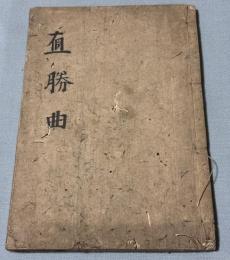 直勝曲